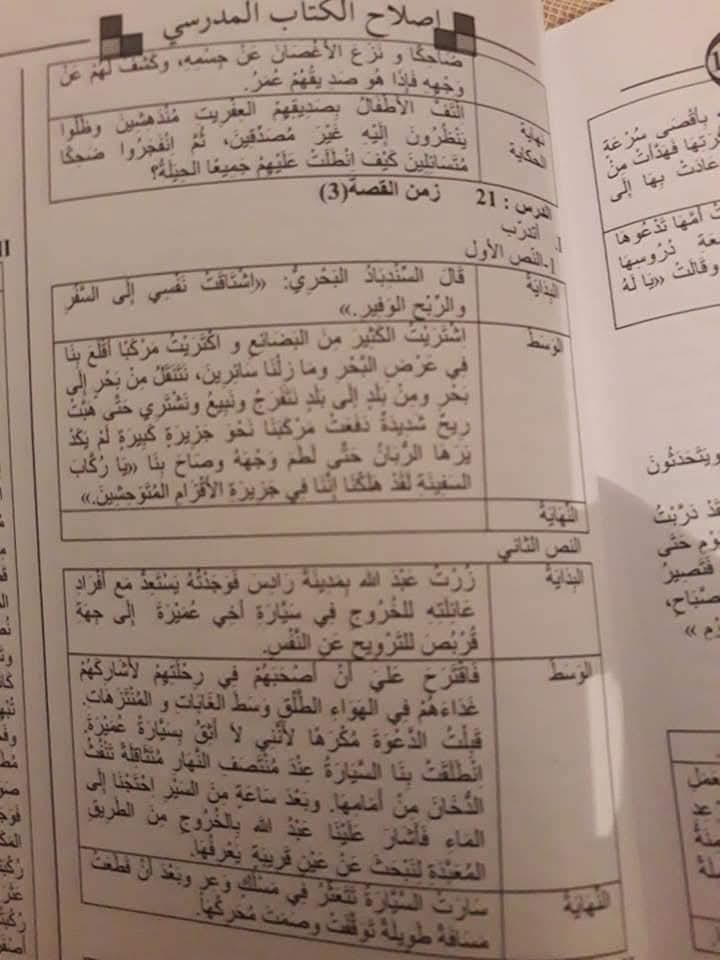 إصلاح الكتاب المدرسي
ضَاحِكًا و نَزَعَ الأَغْصَانَ عَنْ جِسْمِهِ، وَكَشَفَ لَهُمْ عَنْ
وَجْهِهِ فَإِذَا هُوَ صَدِيقُهُمْ عُمَرُ.
نهاية الحكاية
الْتَفَّ الأَطْفَالُ بِصَدِيقِهِمْ العِفْرِيتِ مُنْدَهِشِينَ وَظَلُّوا
يَنْظُرُونَ إِلَيْهِ غَيْرَ مُصَدِّقِينَ، ثُمَّ انْفَجَرُوا ضَحِكًا
مُتَسَائِلِينَ كَيْفَ انْطَلَتْ عَلَيْهِمْ جَمِيعًا الحِيلَةُ؟
الدرس : 21 زمن القصة(3)
1. أتدرّب
1-النص الأول
البِدَايَةُ
قَالَ السِّنْدِبَادُ البَحْرِيُّ: «اشْتَاقَتْ نَفْسِي إِلَى السَّفَرِ
والرِّبْحِ الوَفِيرِ.»
الوَسَطُ
اشْتَرَيْتُ الكَثِيرَ مِنَ البَضَائِعِ و اكْتَرَيْتُ مَرْكَبًا أَقْلَعَ بِنَا
فِي عَرْضِ البَحْرِ ومَا زِلْنَا سَائِرِينَ، نَتَنَقَّلُ مِنْ بَحْرٍ إِلَى
بَحْرٍ ومِنْ بَلَدٍ إِلَى بَلَدٍ نَتَفَرَّجُ ونَبِيعُ ونَشْتَرِي حَتَّى هَبَّتْ
رِيحٌ شَدِيدَةٌ دَفَعَتْ مَرْكَبَنَا نَحْوَ جَزِيرَةٍ كَبِيرَةٍ لَمْ يَكَدْ
يَرَهَا الرُّبَّانُ حَتَّى لَطَمَ وَجْهَهُ وصَاحَ بِنَا «يَا رُكَّابَ
السَفِينَةِ لَقَدْ هَلَكْنَا إِنَّنَا فِي جَزِيرَةِ الأَقْزَامِ المُتَوَحِّشِينَ.»
النِّهَايَةُ
النص الثاني
البِدَايَةُ
زُرْتُ عَبْدَ الله بِمَدِينَةِ رَادِسَ فَوَجَدْتُهُ يَسْتَعِدُّ مَعَ أَفْرَادِ
عَائِلَتِهِ للخُرُوجِ فِي سَيَّارَةِ أَخِي عُمَيْرَةَ إِلَى جِهَةِ
قُرْبُصَ لِلتَّرْوِيحِ عَنِ النَّفْسِ.
الوَسَطُ
فَاقْتَرَحَ عَلَيَّ أَنْ أَصْحَبَهُمْ فِي رِحْلَتِهِمْ لأُشَارِكَهُمْ
غَدَاءَهُمْ فِي الهَوَاءِ الطَّلْقِ وَسَطَ الغَابَاتِ و المُنْتَزَهَاتِ.
قَبِلْتُ الدَّعْوَةَ مُكْرَهًا لأَنَّنِي لاَ أَثِقُ بِسَيَّارَةِ عُمَيْرَةَ.
انْطَلَقَتْ بِنَا السَّيَّارَةُ عِنْدَ مُنْتَصَفِ النَّهَارِ مُتَثَاقِلَةً تَنْفُثُ
الدُّخَانَ مِنْ أَمَامِهَا. وبَعْدَ سَاعَةٍ مِنَ السَّيْرِ احْتَجْنَا إِلَى
المَاءِ فَأَشَارَ عَلَيْنَا عَبْدُ الله بِالخُرُوجِ مِنَ الطَّرِيقِ
المُعَبَّدَةِ لِنَبْحَثَ عَنْ عَيْنٍ قَرِيبَةٍ يَعْرِفُهَا.
النِّهَايَةُ
سَارَتْ السَّيَّارَةُ تَتَعَثَّرُ فِي مَسْلَكٍ وَعِرٍ وبَعْدَ أَنْ قَطَعَتْ
مَسَافَةً طَوِيلَةً تَوَقَّفَتْ وصَمَتَ مُحَرِّكُهَا.
بِأَقْصَى سُرْعَةٍ
فَهَدَأَتْ مِنْ
عَادَتْ بِهَا إِلَى
أُمُّهَا تَدْعُوهَا
دُرُوسِهَا
وَقَالَتْ «يَا لَهُ
وَيَتَحَدَّثُونَ
دَرَّبْتُ
حَتَّى
فَتَصِيرُ